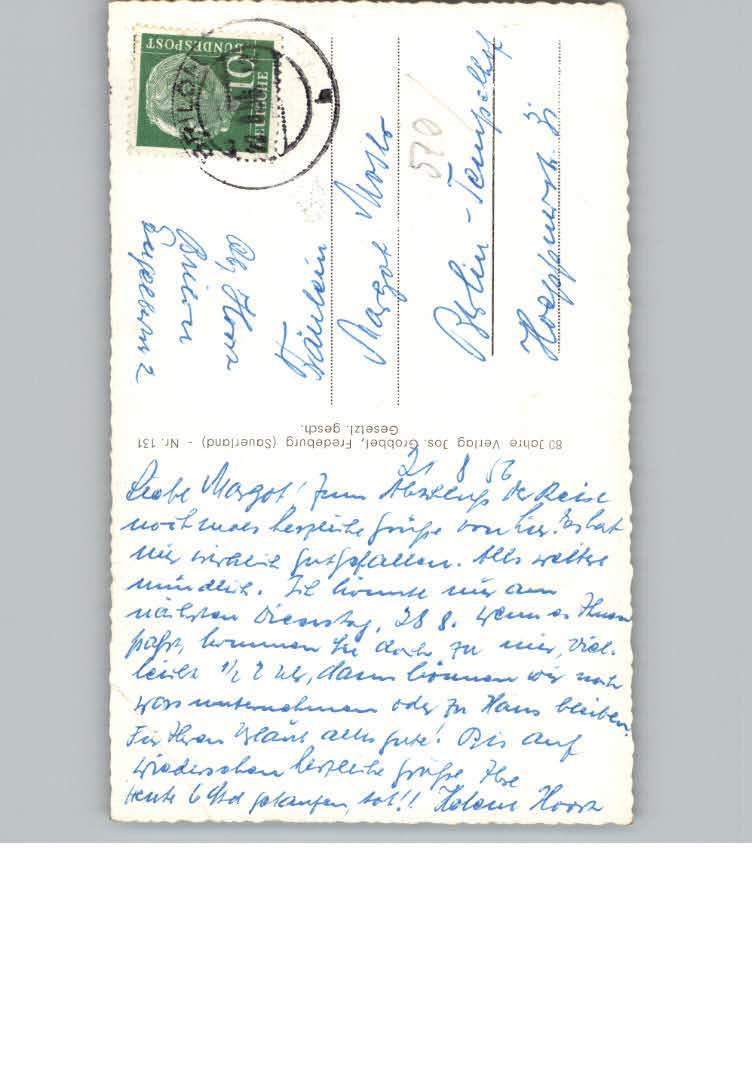 21 8 56
Liebe Margot! Zum Abschluß der Reise
nochmals herzliche Grüße von hier. Es hat
mir wirklich gut gefallen. Alles weitere
mündlich. Ich könnte nur am
nächsten Dienstag, 28 8. Wenn es Ihnen
paßt, kommen Sie doch zu mir, viel-
leicht 1/2 2 Uhr, dann können wir noch
was unternehmen oder zu Haus bleiben.
Für Ihren Urlaub alles gute! Bis auf
wiedersehen herzliche Grüße Ihre
heute 6 Std gelaufen, tot!! Helene
80 Jahre Verlag Jos. Grobbel, Fredeburg (Sauerland) - Nr. 131
Gesetzl. gesch.
DEUTSCHE
BUNDESPOST
10
BRILON
h
Abs
Brilon
Fräulein
Margot
570
Berlin - Tempelhof
Hoeppnerstr.